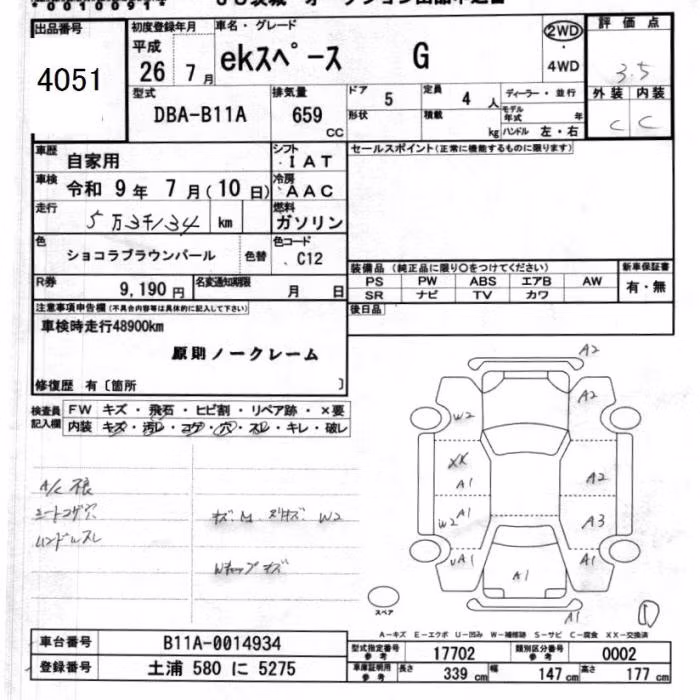 出品番号 4051
初度登録年月 平成 26 7 月
車名・グレード ekスペース G
2WD ・ 4WD
評価点 3.5
外装 内装
C C
型式 DBA-B11A
排気量 659 CC
ドア 5
形状
定員 4 人
積載 kg
ディーラー・並行
モデル年式 年
ハンドル 左・右
車歴 自家用
シフト IAT
車検 令和 9 年 7 月(10 日)
冷房 AAC
走行 5万3千134 km
燃料 ガソリン
色 ショコラブラウンパール 色替
色コード C12
R券 9,190 円
名変通知期限 月 日
セールスポイント(正常に機能するものに限ります)
装備品 (純正品に限り○をつけてください)
PS PW ABS エアB AW
SR ナビ TV カワ
新車保証書 有・無
後日品
注意事項申告欄(不具合内容等は具体的に記入して下さい)
車検時走行48900km
原則ノークレーム
修復歴 有〔箇所 〕
検査員記入欄
FW キズ・飛石・ヒビ割・リペア跡・×要
内装 キズ・汚レ・コゲ・穴・スレ・キレ・破レ
A/C 不良
シートコゲ穴
ハンドルスレ
W2
A2
A2
W2
XX
A1
A1
W2
UA1
A2
A3
A1
A1
A1
スペア
A-キズ E-エクボ U-凹み W-補修跡 S-サビ C-腐食 XX-交換済
車台番号 B11A-0014934
登録番号 土浦 580 に 5275
型式指定番号 参考 17702
類別区分番号 参考 0002
車庫証明用 参考 長さ 339 cm 幅 147 cm 高さ 177 cm